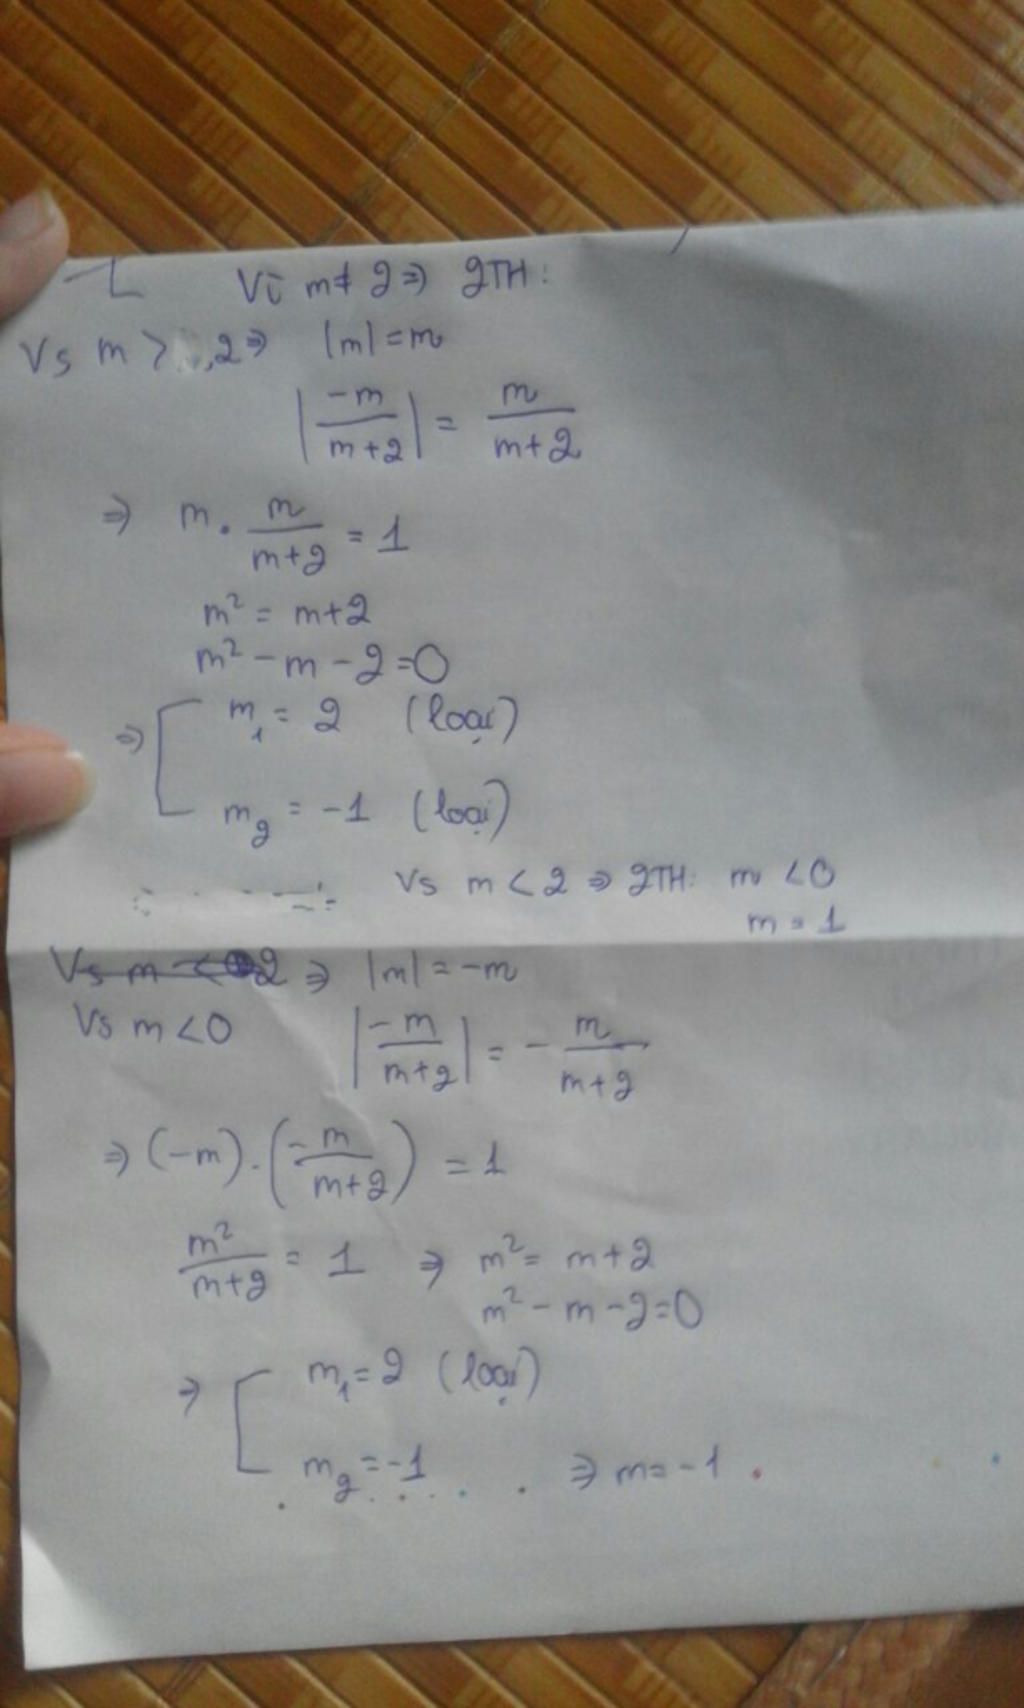 Vì m ≠ 2 ⇒ 2TH:
Vs m > 2 ⇒ |m| = m
|-m/(m+2)| = m/(m+2)
⇒ m . m/(m+2) = 1
m² = m+2
m² - m - 2 = 0
⇒ [ m₁ = 2 (loại)
m₂ = -1 (loại)
Vs m < 2 ⇒ 2TH: m < 0
m = 1
⇒ |m| = -m
Vs m < 0 |-m/(m+2)| = - m/(m+2)
⇒ (-m) . (-m/(m+2)) = 1
m²/(m+2) = 1 ⇒ m² = m+2
m² - m - 2 = 0
⇒ [ m₁ = 2 (loại)
m₂ = -1 ⇒ m = -1